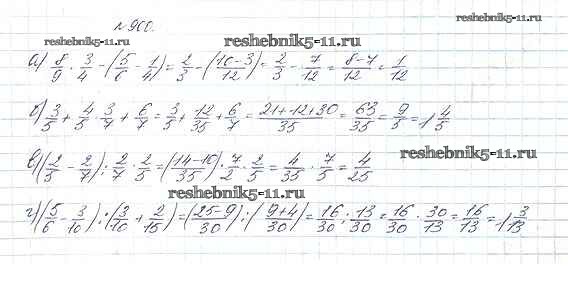 №900.
reshebnik5-11.ru
reshebnik5-11.ru
reshebnik5-11.ru
а) 8/9 · 3/4 - (5/6 - 1/4) = 2/3 - (10-3/12) = 2/3 - 7/12 = 8-7/12 = 1/12
б) 3/5 + 4/5 · 3/7 + 6/7 = 3/5 + 12/35 + 6/7 = 21+12+30/35 = 63/35 = 9/5 = 1 4/5
в) (2/5 - 2/7) : 2/7 · 2/5 = (14-10/35) · 7/2 · 2/5 = 4/35 · 7/5 = 4/25
reshebnik5-11.ru
reshebnik5-11.ru
г) (5/6 - 3/10) : (3/10 + 2/15) = (25-9/30) : (9+4/30) = 16/30 : 13/30 = 16/30 · 30/13 = 16/13 = 1 3/13